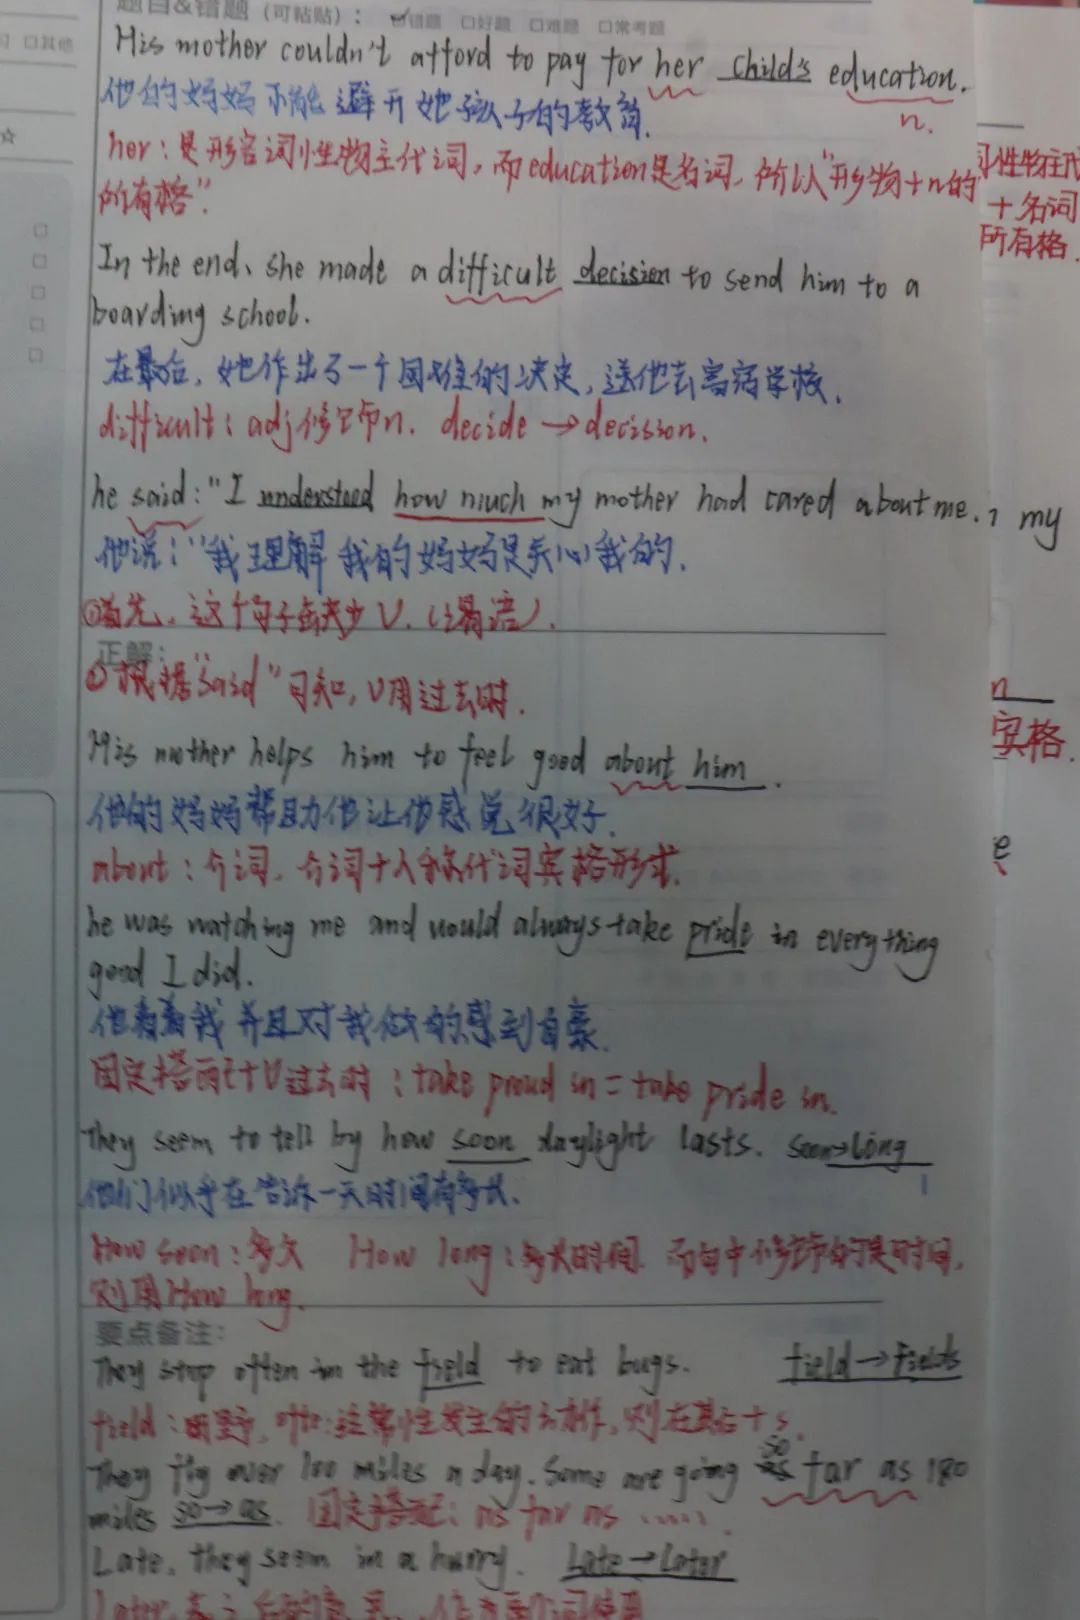 题目&错题（可粘贴）：☑错题 □好题 □难题 □常考题
□其他
His mother couldn't afford to pay for her child's education.
n.
他的妈妈不能避开她孩子的教育.
her：是形容词性物主代词，而education是名词，所以"形物+n的
所有格".
性物主代
+名词
所有格.
In the end, she made a difficult decision to send him to a
boarding school.
在最后，她作出了一个困难的决定，送他去寄宿学校.
difficult：adj修饰n. decide→decision.
he said："I understood how much my mother had cared about me.
my
他说："我理解我的妈妈是关心我的.
①首先，这个句子缺少V.（谓语）.
正解：
②根据"said"可知，V用过去时.
n
宾格.
His mother helps him to feel good about him.
他的妈妈帮助他让他感觉很好.
e
about：介词，介词+人称代词宾格形式.
he was watching me and would always take pride in everything
good I did.
他看着我并且对我做的感到自豪.
固定搭配+V过去时：take proud in = take pride in.
They seem to tell by how soon daylight lasts. soon→long
他们似乎在告诉一天时间有多长.
How soon：多久 How long：多长时间. 而句中修饰的是时间，
则用How long.
要点备注：
They stop often in the field to eat bugs. field→fields
field：田野，经常性发生的动作，则在其后+s.
They fly over 100 miles a day. Some are going so far as 180
miles so→as. 固定搭配：as far as ......
Late, they seem in a hurry. Late→Later